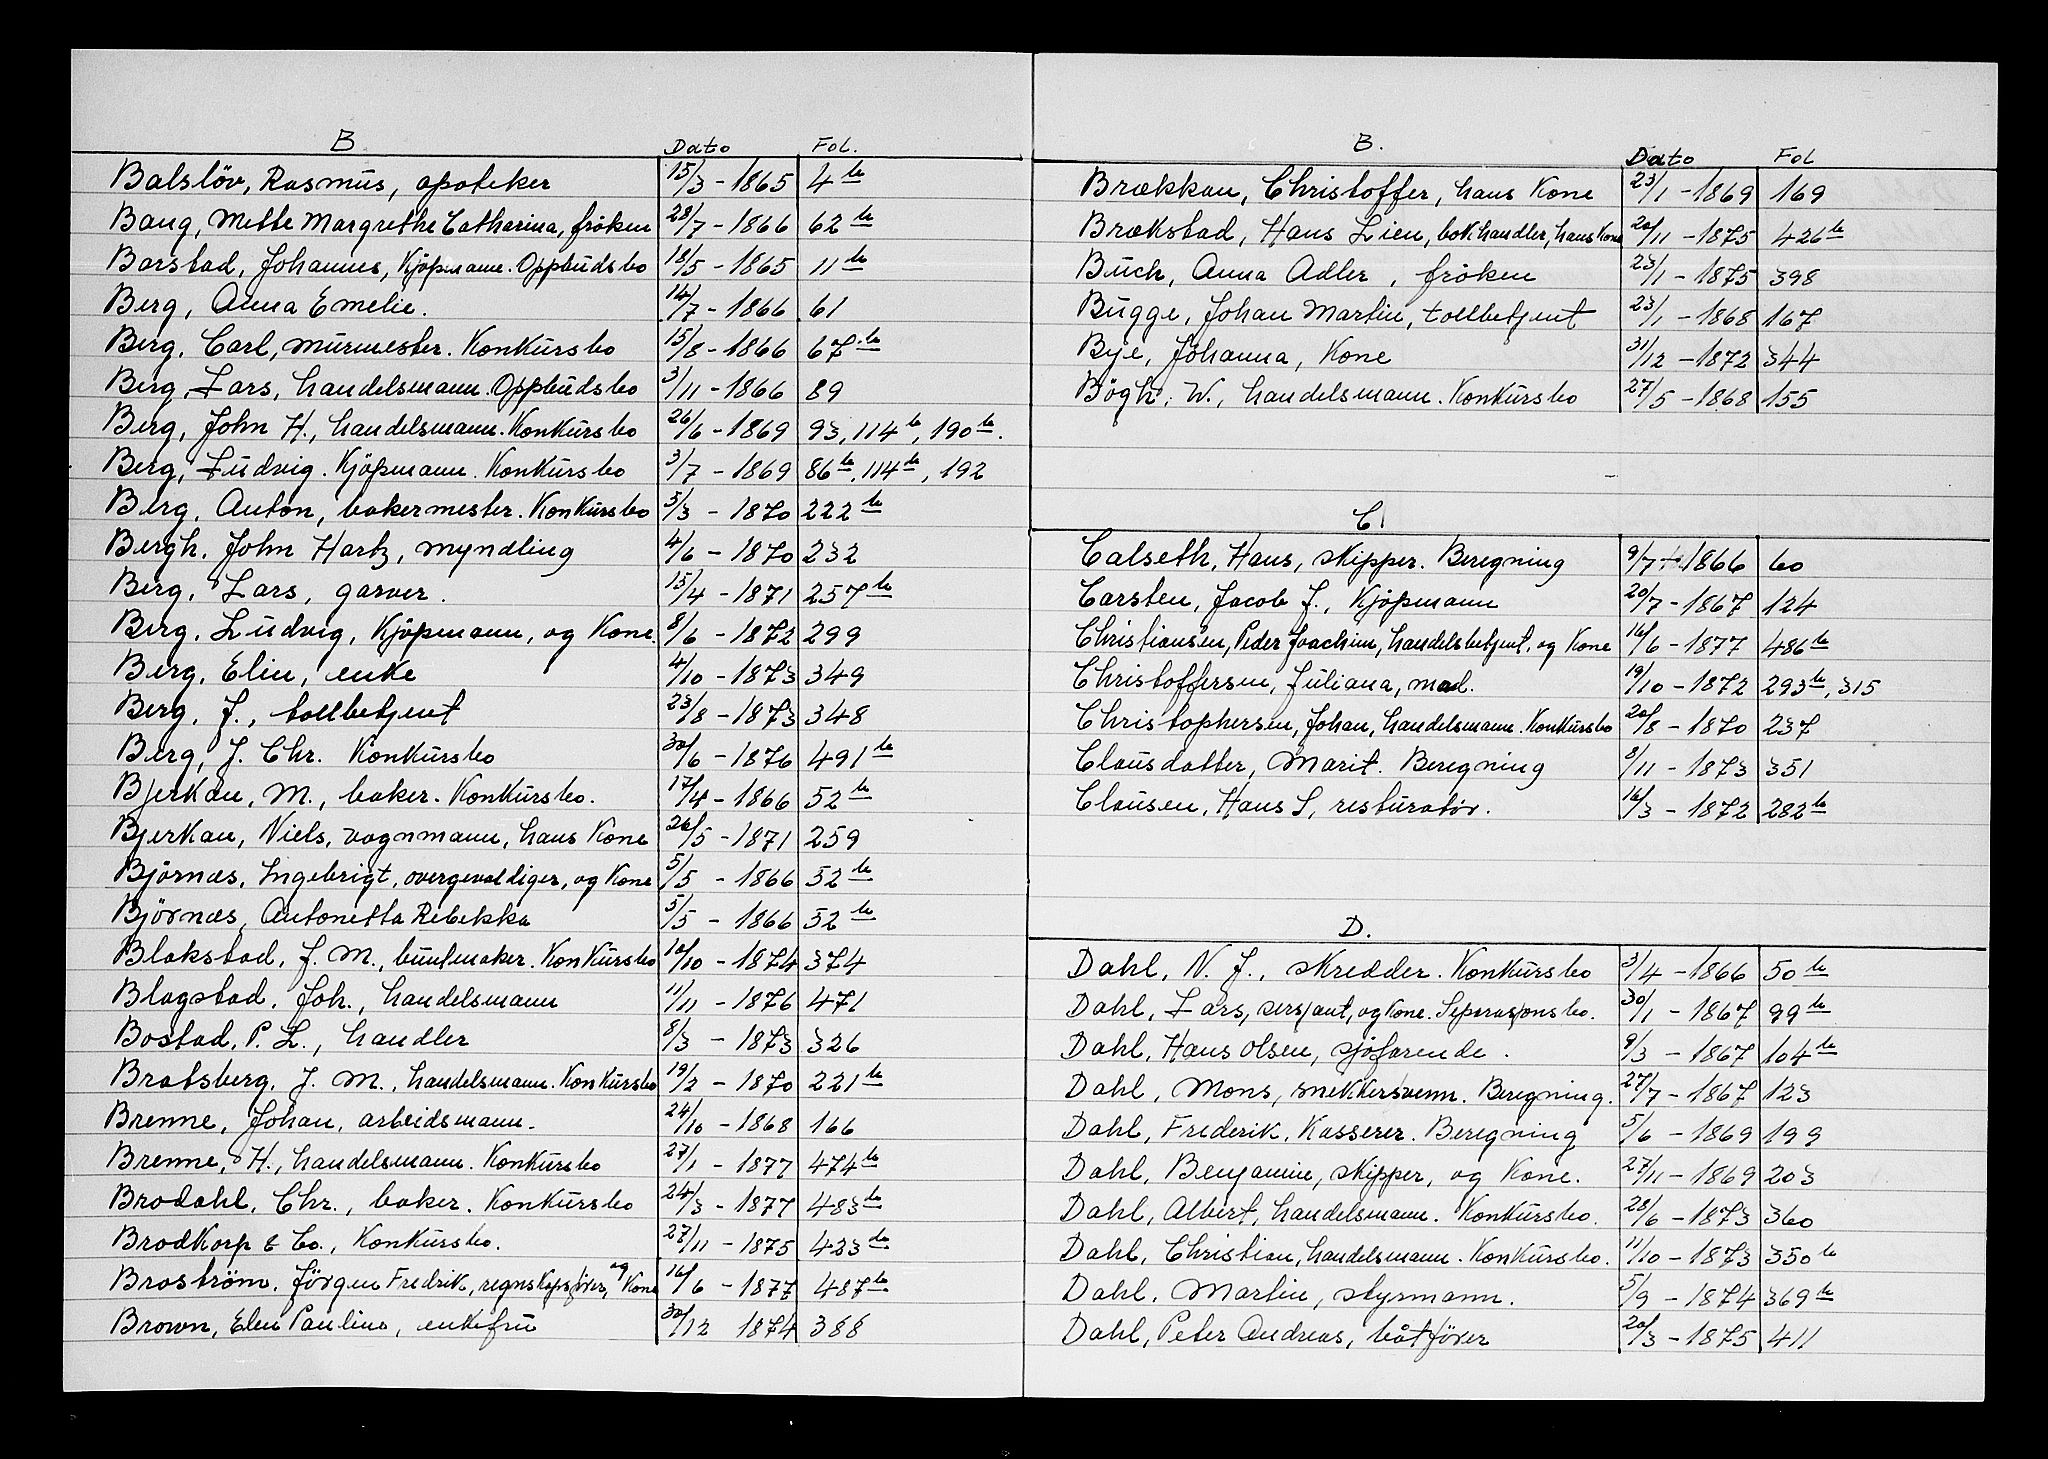 B Dato Fol.
Balslöv, Rasmus, apoteker 15/3 - 1865 4 b
Baug, Mette Margrethe Catharina, fröken 28/7 - 1866 62 b
Barstad, Johannes, Kjöpmann. Oppbudsbo 18/5 - 1865 11 b
Berg, Anna Emelie. 14/7 - 1866 61
Berg, Carl, murmester. Konkursbo 15/8 - 1866 67 b
Berg, Lars, handelsmann. Oppbudsbo 3/11 - 1866 89
Berg, John H., handelsmann. Konkursbo 26/6 - 1869 93, 114 b, 190 b.
Berg, Ludvig. Kjöpmann. Konkursbo 3/7 - 1869 86 b, 114 b, 192
Berg, Anton, bakermester. Konkursbo 5/3 - 1870 222 b
Bergh, John Hartz, myndling 4/6 - 1870 232
Berg, Lars, garver. 15/4 - 1871 257 b
Berg, Ludvig, Kjöpmann, og Kone. 8/6 - 1872 299
Berg, Elin, enke 4/10 - 1873 349
Berg, J., tollbetjent 23/8 - 1873 348
Berg, J. Chr. Konkursbo 30/6 - 1876 491 b
Bjerkan, M., baker. Konkursbo. 17/4 - 1866 52 b
Bjerkan, Niels, vognmann, hans Kone 26/5 - 1871 259
Björnæs, Ingebrigt, overgevaldiger, og Kone 5/5 - 1866 52 b
Björnæs, Antonetta Rebekka 5/5 - 1866 52 b
Blakstad, J. M., buntmaker. Konkursbo 10/10 - 1874 374
Blagstad, Joh., handelsmann 11/11 - 1876 471
Bostad, P. L., handler 8/3 - 1873 326
Bratsberg, J. M., handelsmann. Konkursbo 19/2 - 1870 221 b
Brenne, Johan, arbeidsmann. 24/10 - 1868 166
Brenne, H., handelsmann. Konkursbo 27/1 - 1877 474 b
Brodahl, Chr., baker. Konkursbo 24/3 - 1877 483 b
Brodkorp & Co., Konkursbo. 27/11 - 1875 423 b
Broström, Jörgen Fredrik, regnskapsförer, og Kone 16/6 - 1877 487 b
Brown, Elen Pauline, enkefru 30/12 1874 388
B. Dato Fol
Brækkan, Christoffer, hans Kone 23/1 - 1869 169
Brækstad, Hans Lien, bokhandler, hans Kone 20/11 - 1875 426 b
Buch, Anna Adler, fröken 23/1 - 1875 398
Bugge, Johan Martin, tollbetjent 23/1 - 1868 167
Bye, Johanna, Kone 31/12 - 1872 344
Bögh, W., handelsmann. Konkursbo 27/5 - 1868 155
C.
Calseth, Hans, skipper. Beregning 9/7 - 1866 60
Carsten, Jacob J., Kjöpmann 20/7 - 1867 124
Christiansen, Peder Joachim, handelsbetjent, og Kone 16/6 - 1877 486 b
Christoffersen, Juliana, mad. 19/10 - 1872 293 b, 315
Christophersen, Johan, handelsmann. Konkursbo 20/8 - 1870 237
Clausdatter, Marit. Beregning 8/11 - 1873 351
Clausen, Hans S, resturatör. 16/3 - 1872 282 b
D.
Dahl, N. J., skredder. Konkursbo 3/4 - 1866 50 b
Dahl, Lars, sersjant, og Kone. Separasjonsbo. 30/1 - 1867 99 b
Dahl, Hans Olsen, sjöfarende. 9/3 - 1867 104 b
Dahl, Mons, snekkersvenn. Beregning. 27/7 - 1867 123
Dahl, Frederik, Kasserer. Beregning 5/6 - 1869 199
Dahl, Benjamin, skipper, og Kone. 27/11 - 1869 203
Dahl, Albert, handelsmann. Konkursbo. 28/6 - 1873 360
Dahl, Christian, handelsmann. Konkursbo. 11/10 - 1873 350 b
Dahl, Martin, styrmann. 5/9 - 1874 369 b
Dahl, Peter Andreas, båtförer 20/3 - 1875 411